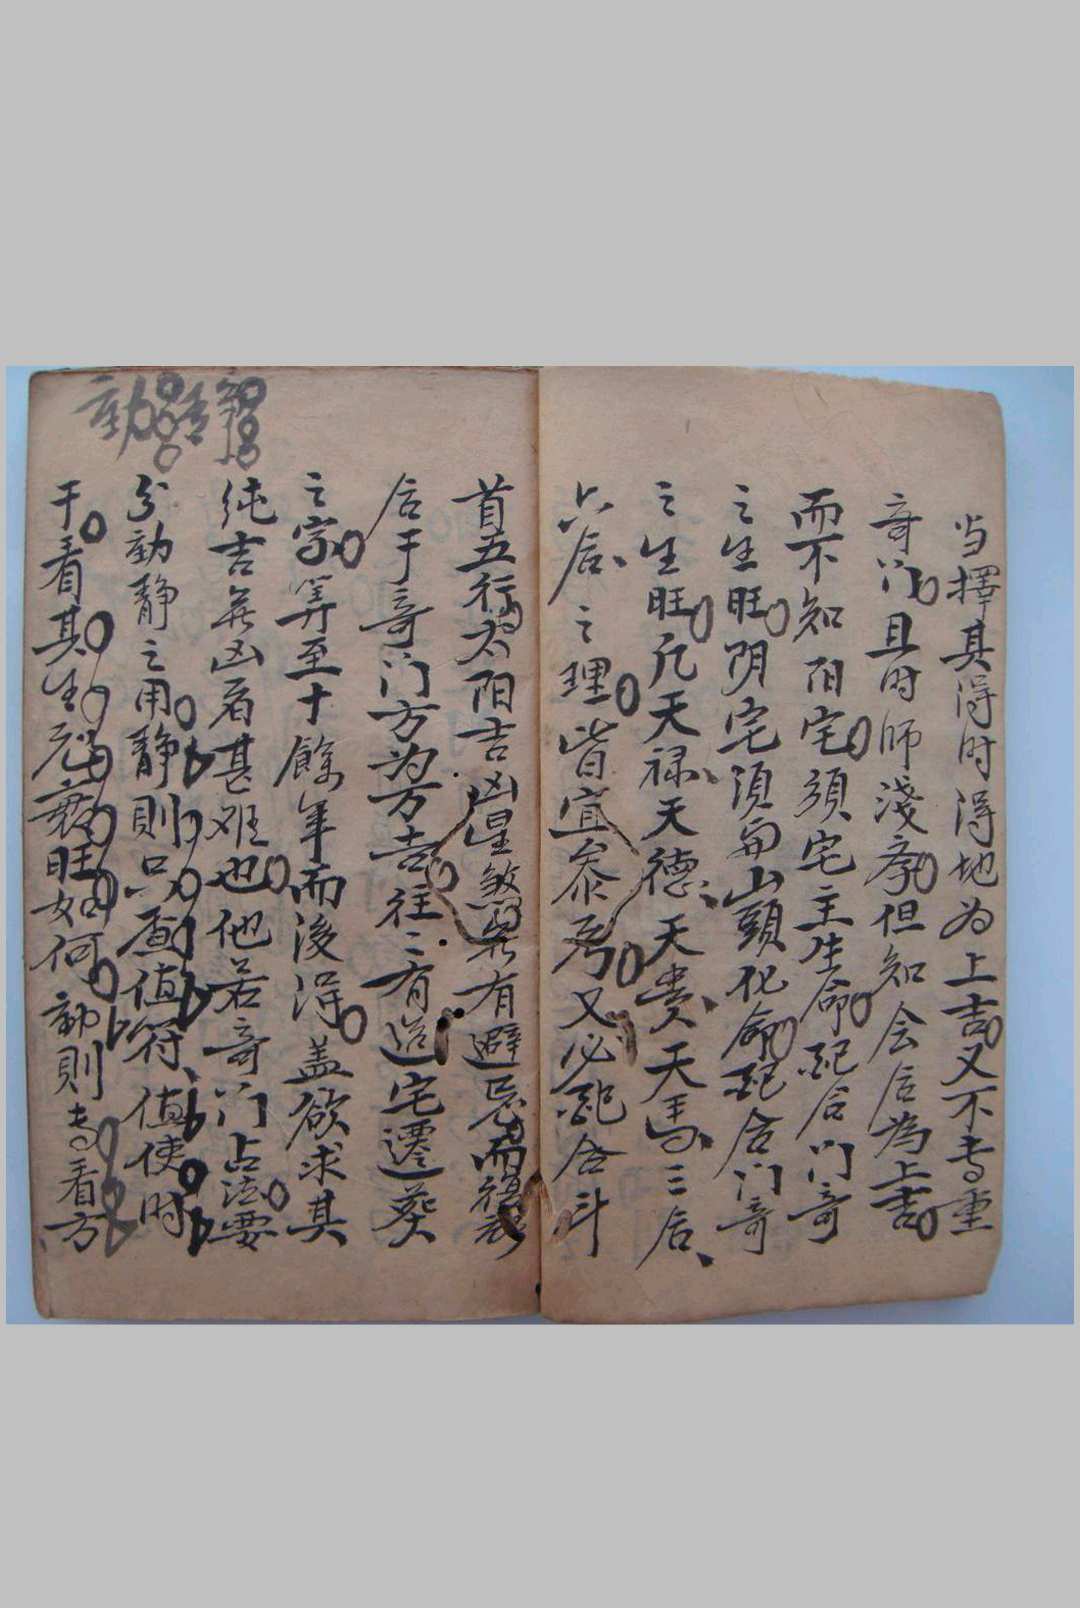 当擇其得时得地为上吉又不专重
奇门且时师淺 但知会后為上吉
而不知阳宅須宅主生命配后门奇
之生旺阴宅須 山頭化命配合门奇
之生旺凡天禄天德天貴天馬三后
六后之理皆宜参 又必配合斗
首五行太阳吉凶星煞 有避忌而
后于奇门方为万吉往〻有造宅遷葬
之家 至十餘年而後得盖欲求其
纯吉無凶者甚难也他若奇门占法要
分動静之用静則只 值符值使时
干看其生克衰旺如何動則专看方
動 静